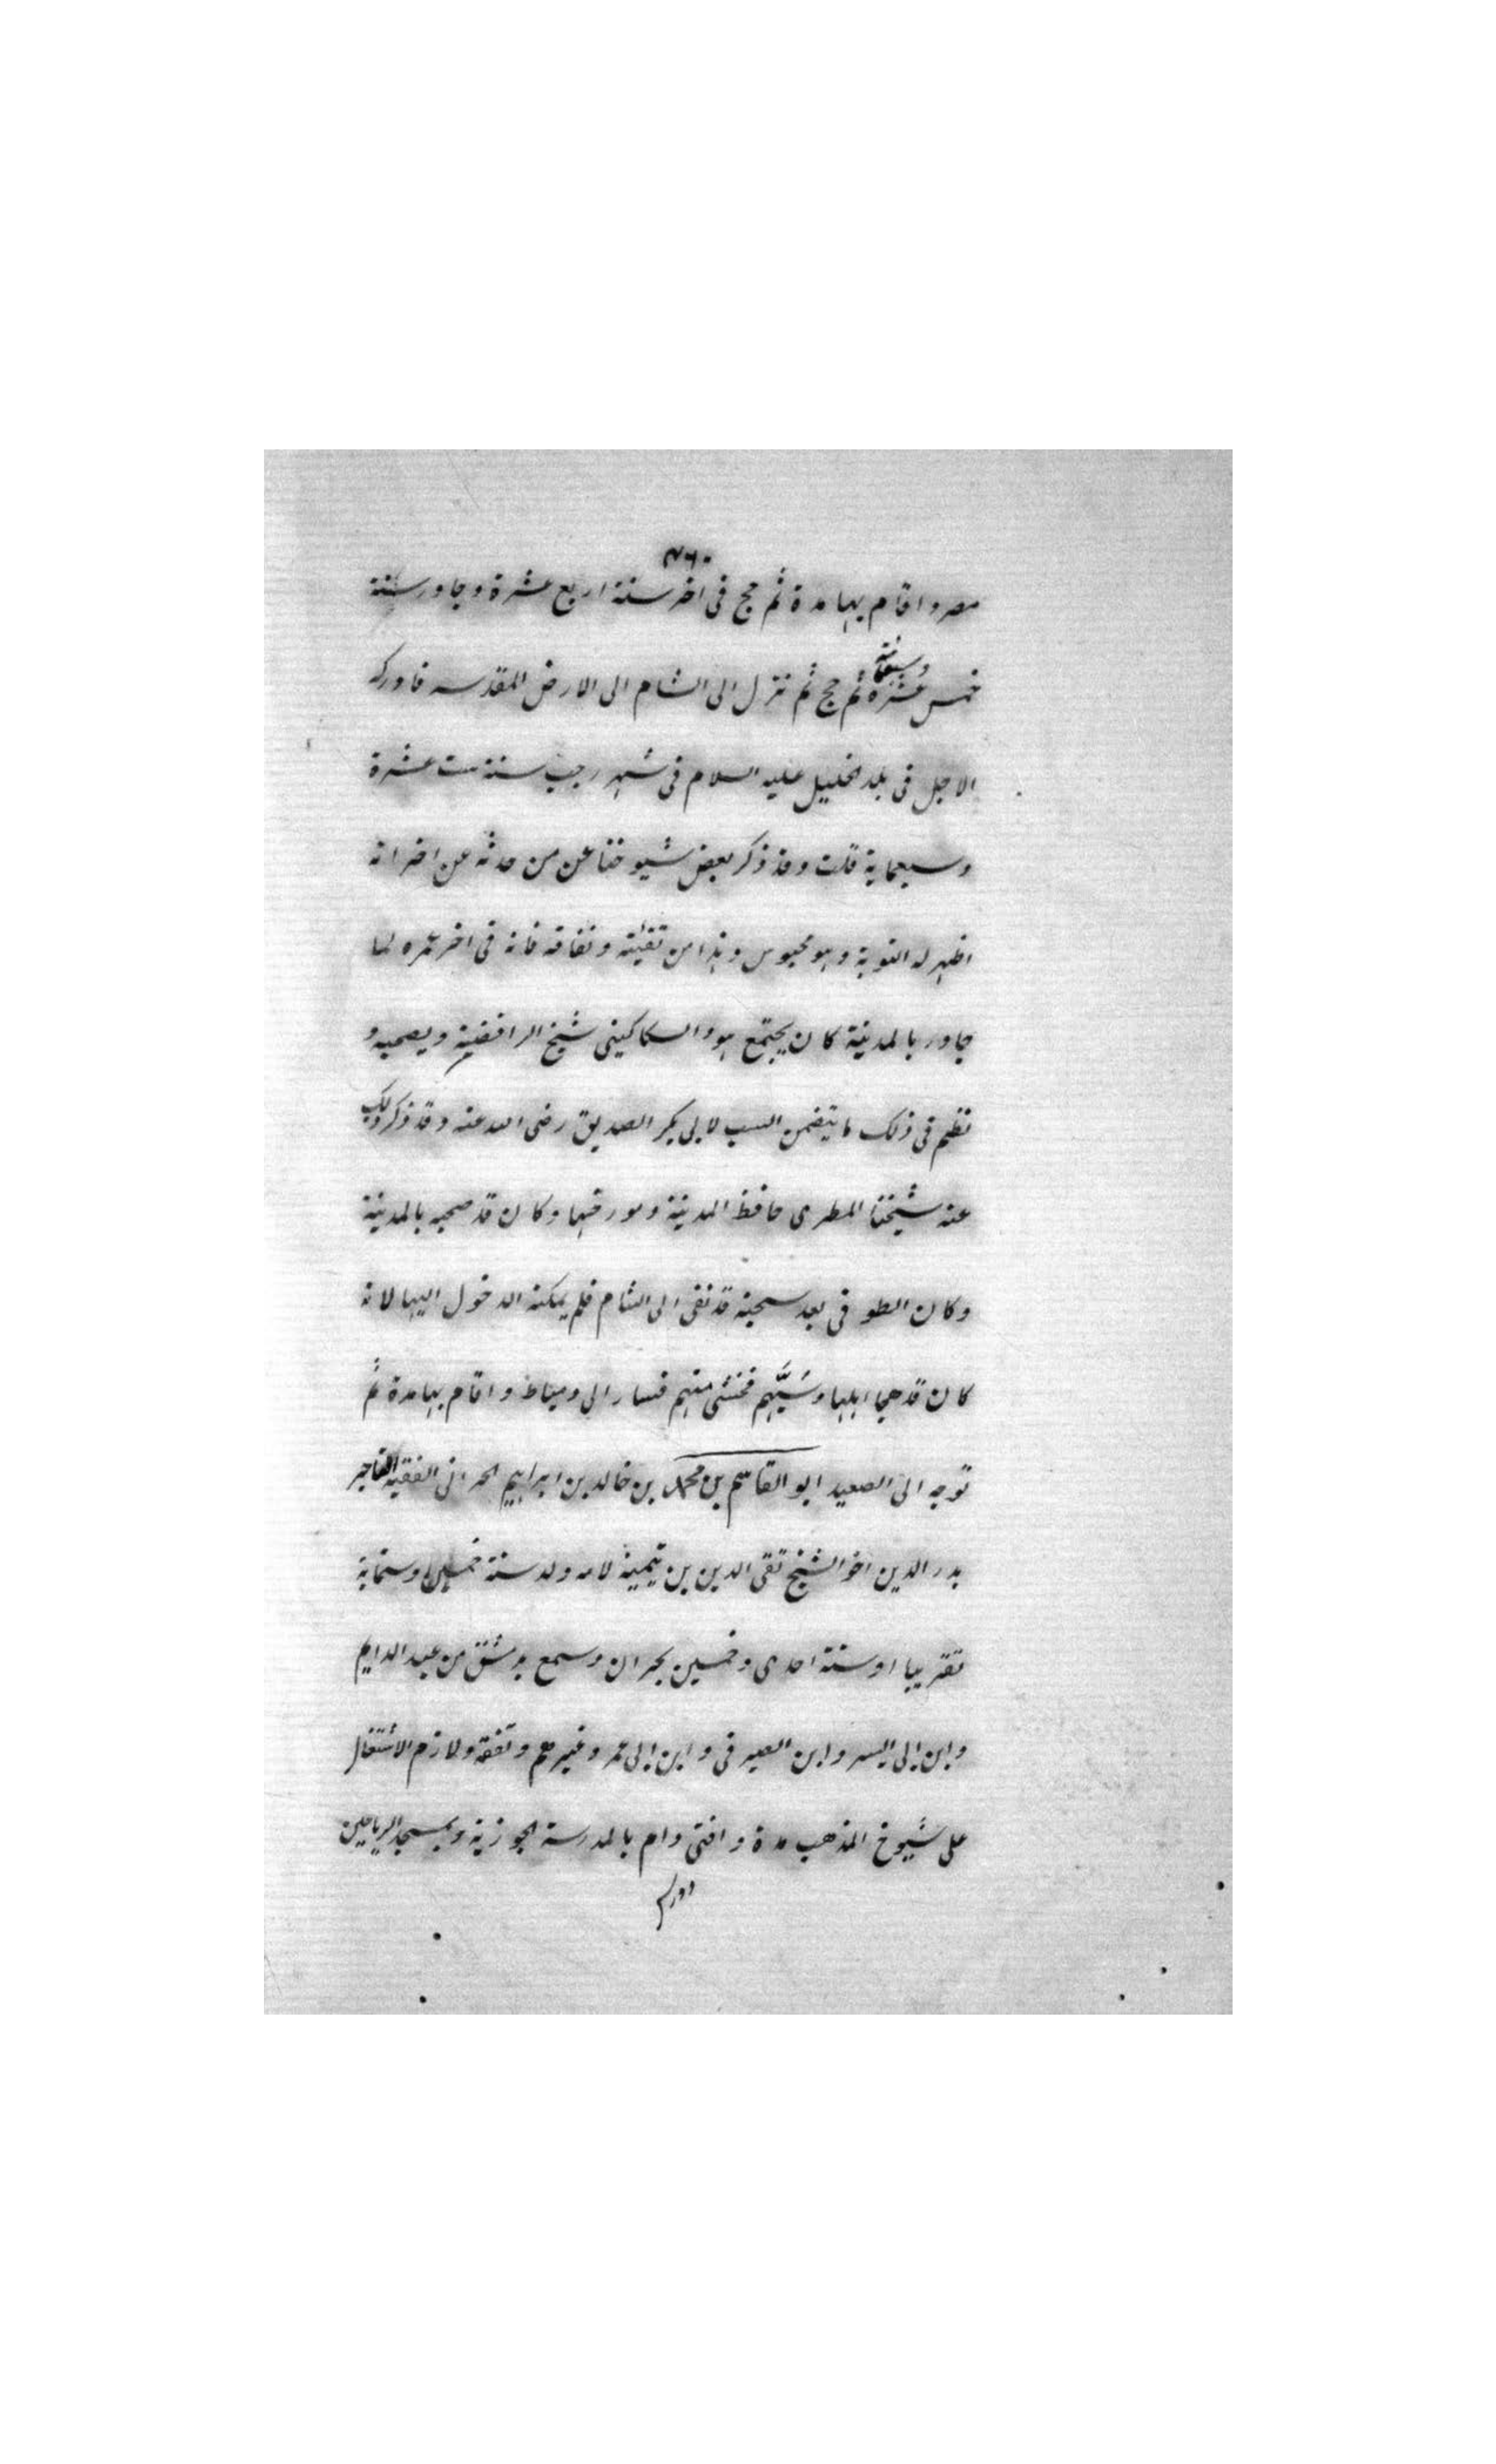 ٧٦٠
مصر واقام بها مدة ثم حج فى اخر سنة اربع عشرة وجاور سنة
خمس عشرة وسبعمائة ثم حج ثم نزل الى الشام الى الارض المقدسه فادركه
الاجل فى بلد الخليل عليه السلام فى شهر رجب سنة ست عشرة
وسبعماية قلت وقد ذكر بعض شيوخنا عن من حدثه عن اخر انه
اظهر له التوبة وهو محبوس وهذا من تقيته ونفاقه فانه فى اخر عمره لما
جاور بالمدينة كان يجتمع هو والسكاكينى شيخ الرافضية ويصحبه و
نظم فى ذلك ما يتضمن السب لابى بكر الصديق رضى الله عنه وقد ذكر ذلك
عنه شيخنا المطرى حافظ المدينة ومورخها وكان قد صحبه بالمدينة
وكان الطوفى بعد سجنه قد نفى الى الشام فلم يمكنه الدخول اليها لانه
كان قد هجا اهلها وسَبَّهم فخشى منهم فسار الى دمياط واقام بها مدة ثم
توجه الى الصعيد ابو القاسم بن محمد بن خالد بن ابراهيم الحرانى الفقيه التاجر
بدر الدين اخو الشيخ تقى الدين بن تيمية لامه ولد سنة خمسين وستماية
تقريبا او سنة احدى وخمسين بحران وسمع بدمشق من عبد الدايم
وابن ابى اليسر وابن الصيرفى وابن ابى عمر وغيرهم وتفقه ولازم الاشتغال
على شيوخ المذهب مدة وافتى وام بالمدرسة الجوزية وبمسجد الرياحين